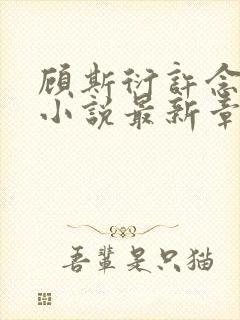 顾斯衍许念
小说最新章
吾辈是只猫